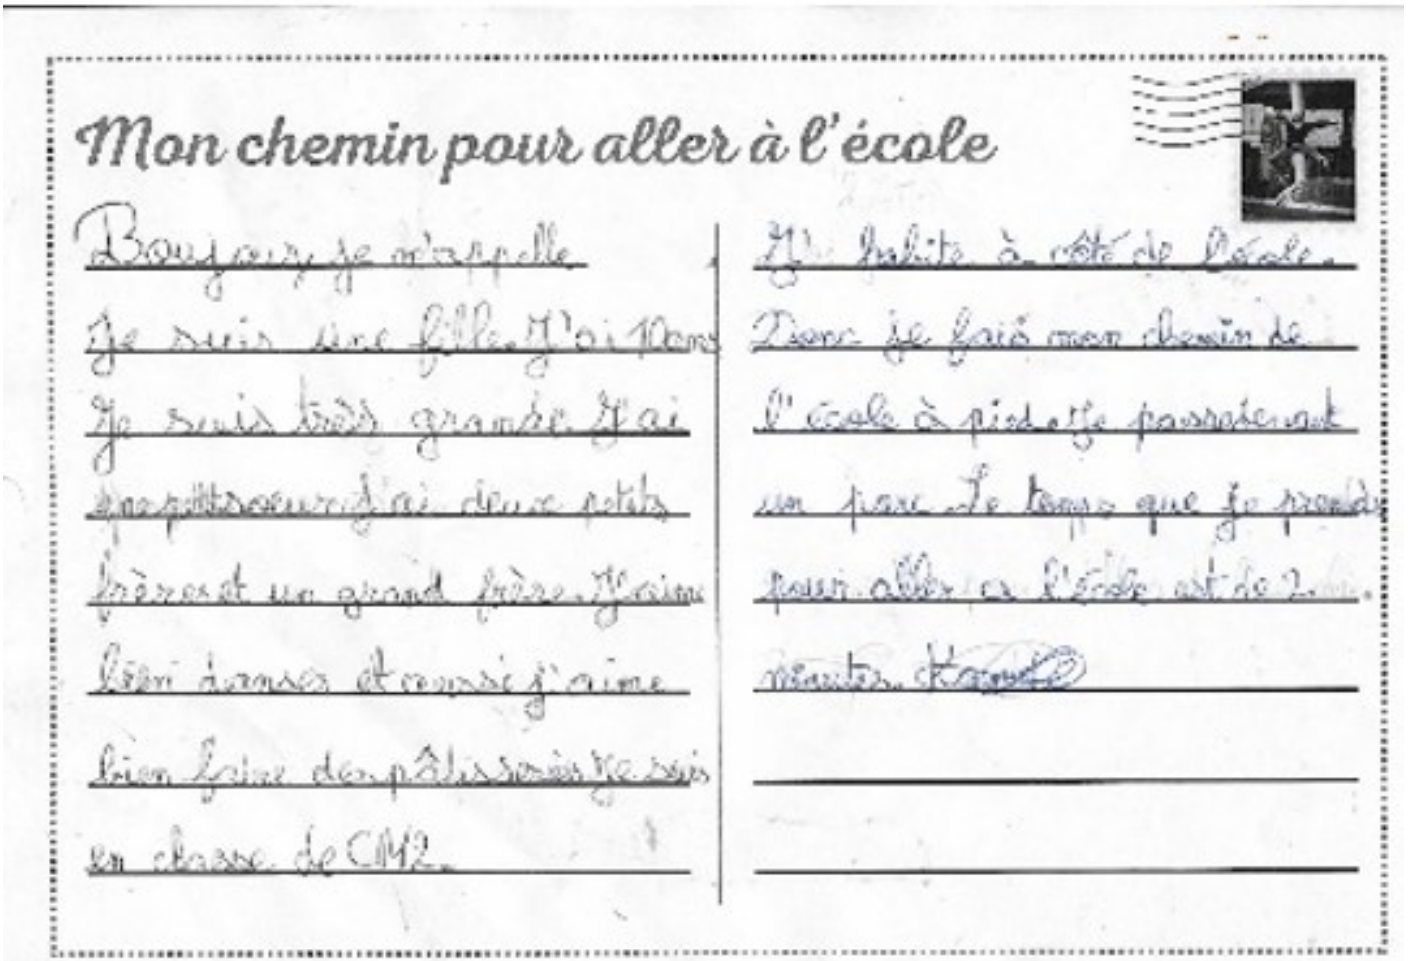 Mon chemin pour aller à l'école
Boujour, je m'appelle
Je suis une fille. J'ai 10 ans
Je suis très grande. J'ai
une petit soeur. J'ai deux petits
frères et un grand frère. J'aime
bien danser et aussi j'aime
bien faire des pâtisseries. Je suis
en classe de CM2.
J' habite à côté de l'école.
Donc je fais mon chemin de
l'école à pied. Je passe
un parc. Le temps que je prends
pour aller a l'école est de 2
minutes.